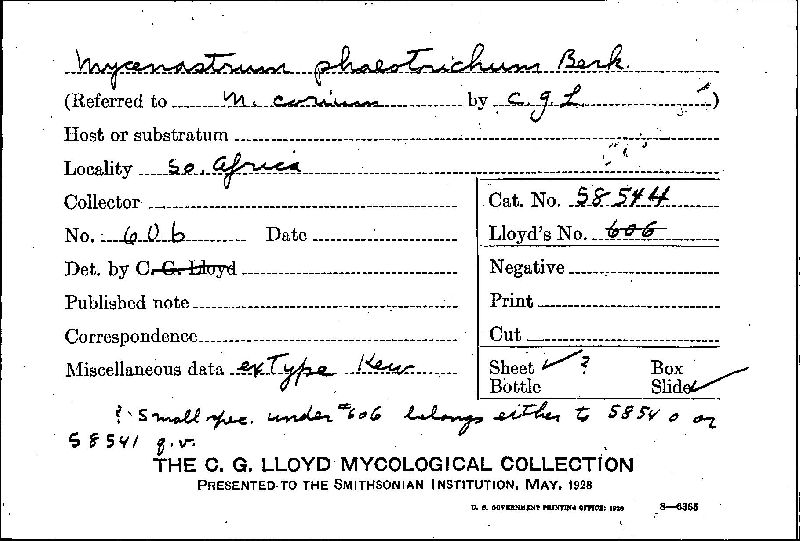 Mycenastrum phaeotrichum Berk.
(Referred to M. corium by C. G. L.)
Host or substratum
Locality So. Africa
Collector
Cat. No. 58544
No. 606 Date
Lloyd's No. 606
Det. by C. G. Lloyd
Negative
Published note
Print
Correspondence
Cut
Miscellaneous data ex Type Kew
Sheet ✓ ? Box
Bottle Slide ✓
? Small spec. under #606 belongs either to 58540 or
58541 q.v.
THE C. G. LLOYD MYCOLOGICAL COLLECTION
PRESENTED TO THE SMITHSONIAN INSTITUTION, MAY, 1928
U. S. GOVERNMENT PRINTING OFFICE: 1928 8—6365